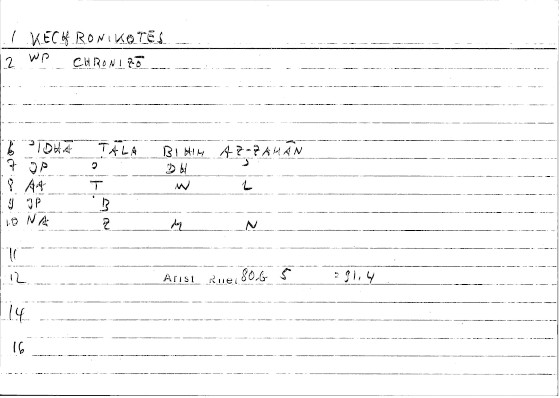 1 KECHRONIKOTĒS
2 WP CHRONIZŌ
6 ʾIDHĀ ṬĀLA BIHIM AZ-ZAMĀN
7 JP ʾ DH ʾ
8 AA Ṭ W L
9 JP B
10 NA Z M N
11
12 Arist Rhet 80.6 5 = 91.4
14
16